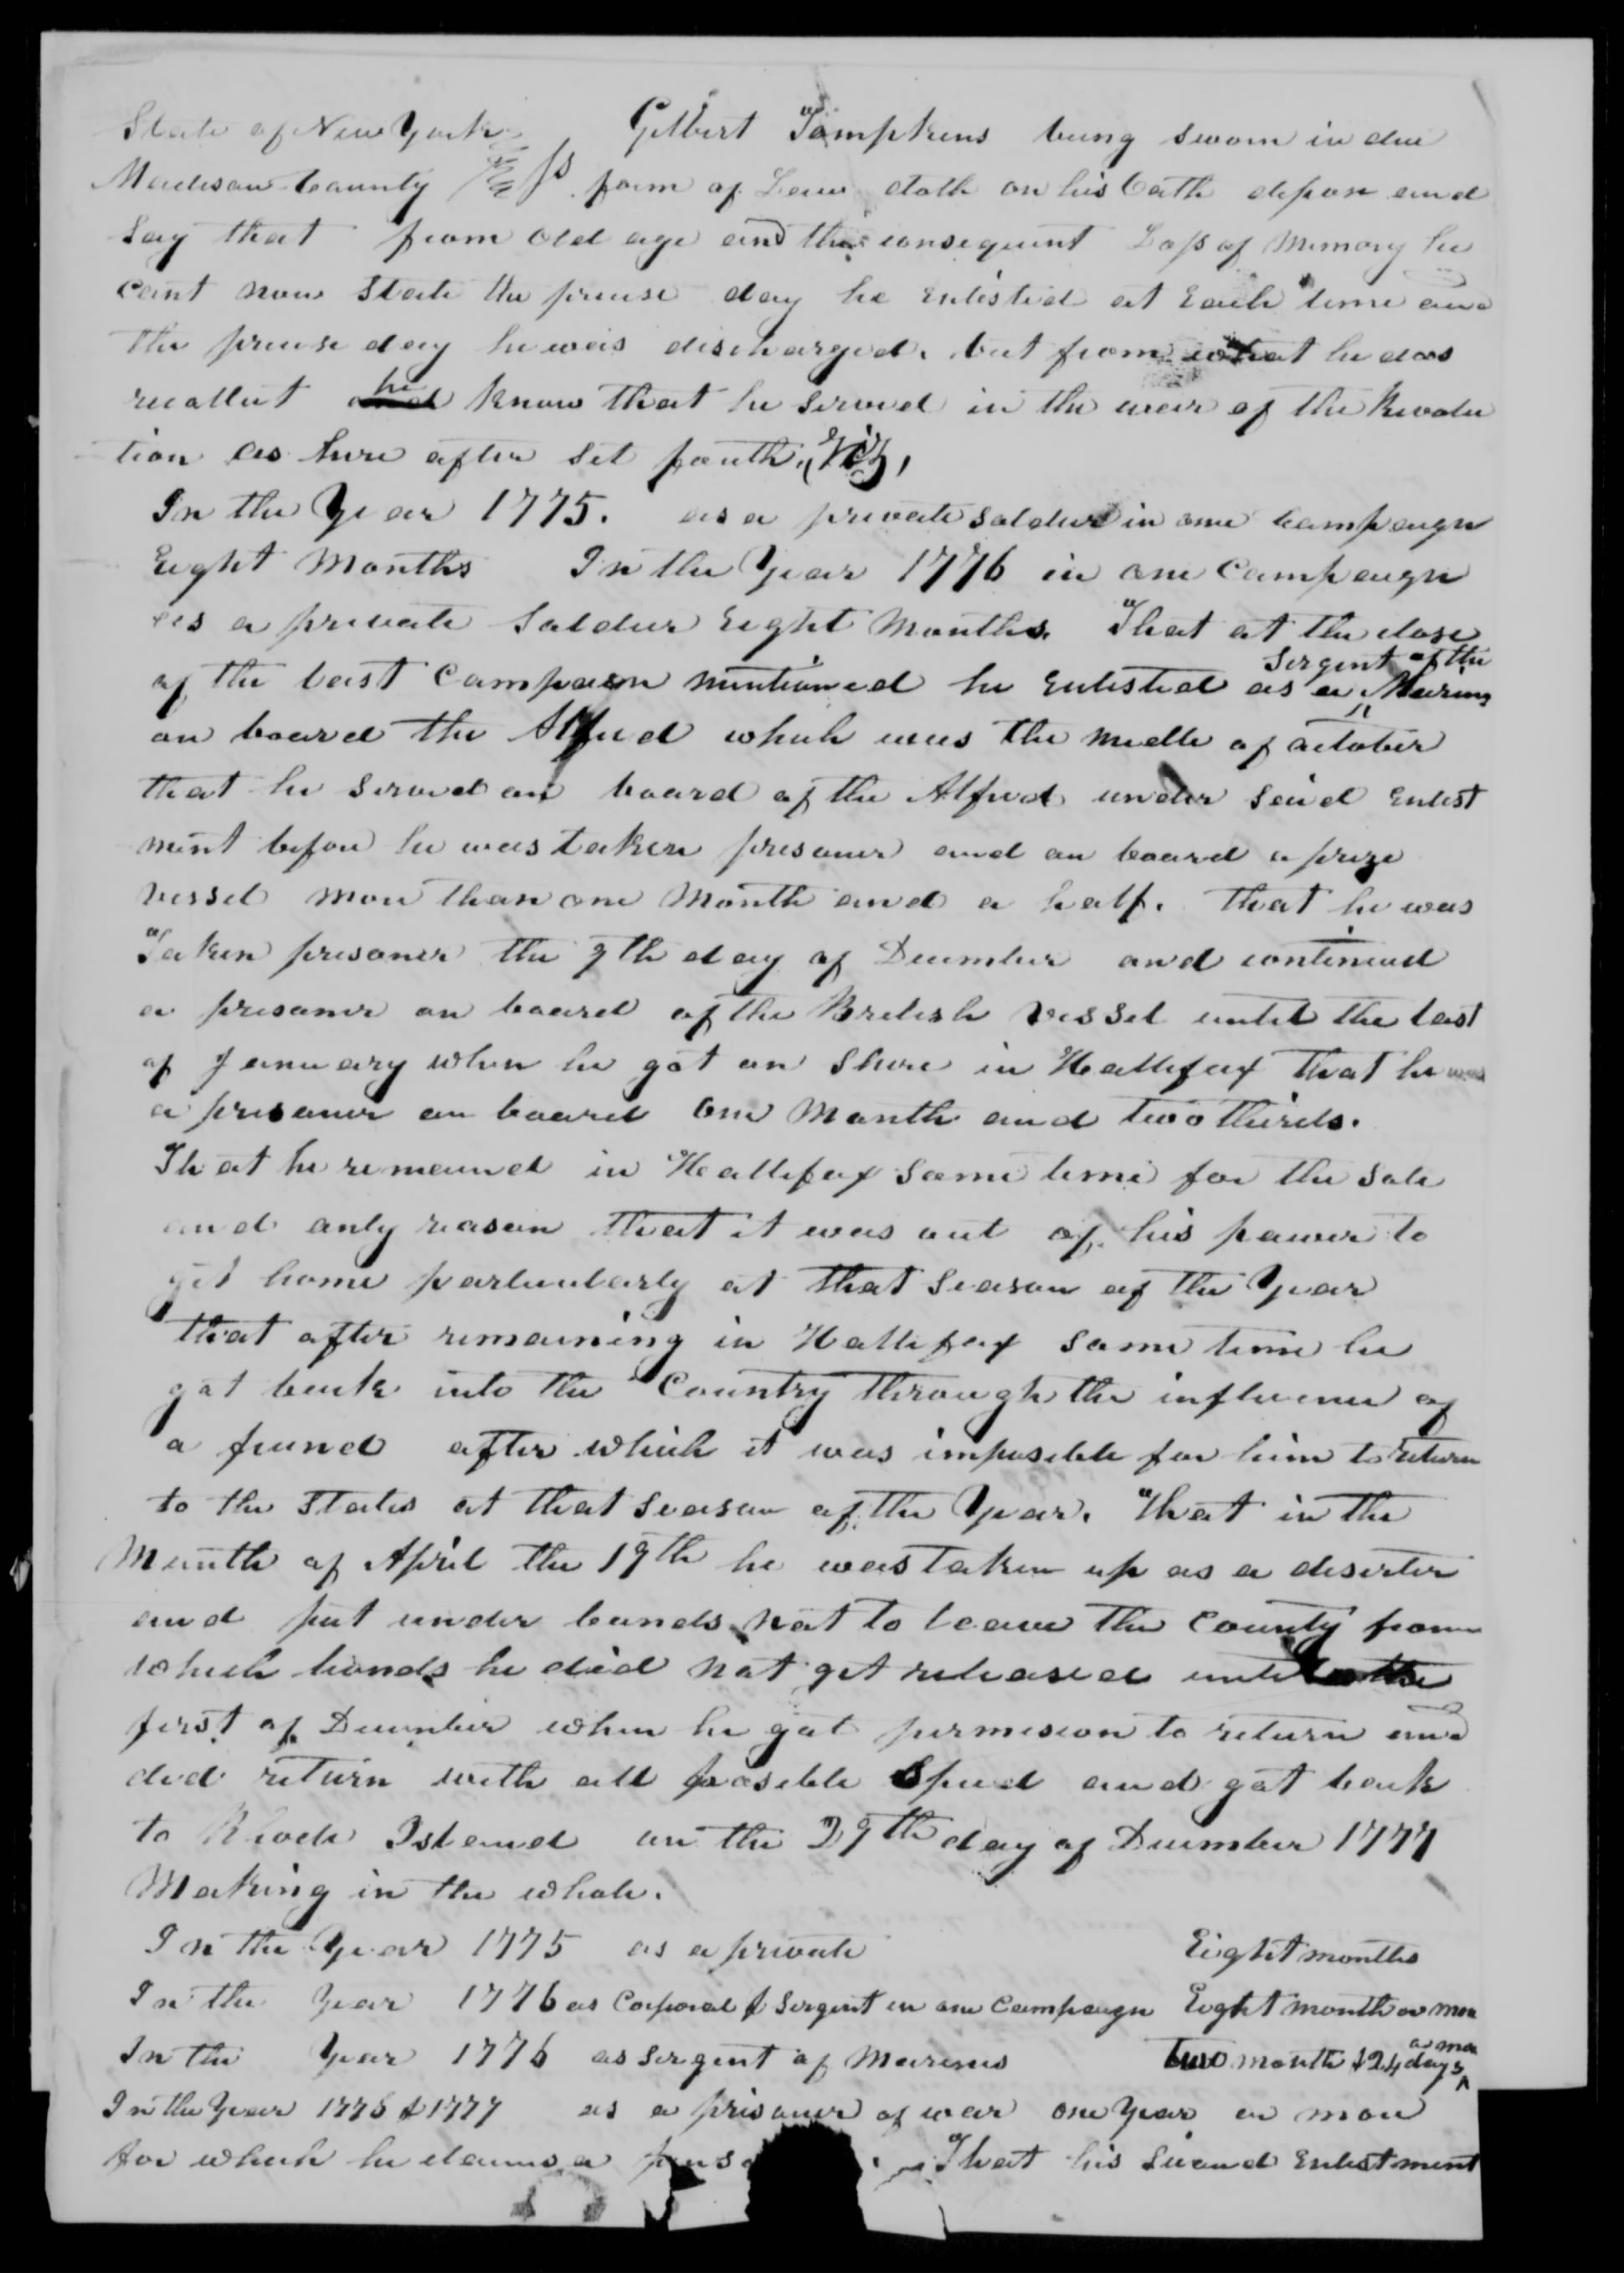 State of New York Gilbert Tompkins being sworn in due
Madison County ss. form of Law doth on his Oath depose and
Say that from old age and the consequent Loss of Memory he
cant now State the precise day he enlisted at Each time and
the precise day he was discharged. but from what he does
recollect he know that he served in the war of the Revolu
tion as here after set fourth, (Viz,
In the Year 1775. as a private soldier in one campaign
Eight Months In the Year 1776 in one Campaign
as a private Soldier Eight Months. That at the close
of the last Campaign mentioned he Enlisted as a Sergent of the Marines
on board the Alfred which was the midle of october
that he served on board of the Alfred under said Enlist
ment before he was taken prisoner and on board a prize
vessel more than one Month and a half. that he was
Taken prisoner the 9th day of December and continued
a prisoner on board of the British vessel until the last
of January when he got on Shore in Hallifax that he was
a prisoner on board one Month and two thirds.
That he remained in Hallifax some time for the sole
and only reason that it was out of his power to
get home particularly at that season of the Year
that after remaining in Hallifax some time he
got back into the Country through the influence of
a friend after which it was imposible for him to return
to the States at that season of the Year. That in the
Month of April the 19th he was taken up as a deserter
and put under bonds not to leave the County from
which bonds he did not get released until the
first of December when he got permision to return and
did return with all posible Speed and got back
to Rhode Island on the 29th day of December 1777
Making in the whole.
In the Year 1775 as a private Eight months
In the Year 1776 as Corporal & Sergent in one Campaign Eight month or more
In the Year 1776 as Sergent of Marines Two month & 24 days or more
In the Year 1776 & 1777 as a prisoner of war one Year or more
for which he claims a That his second Enlistment